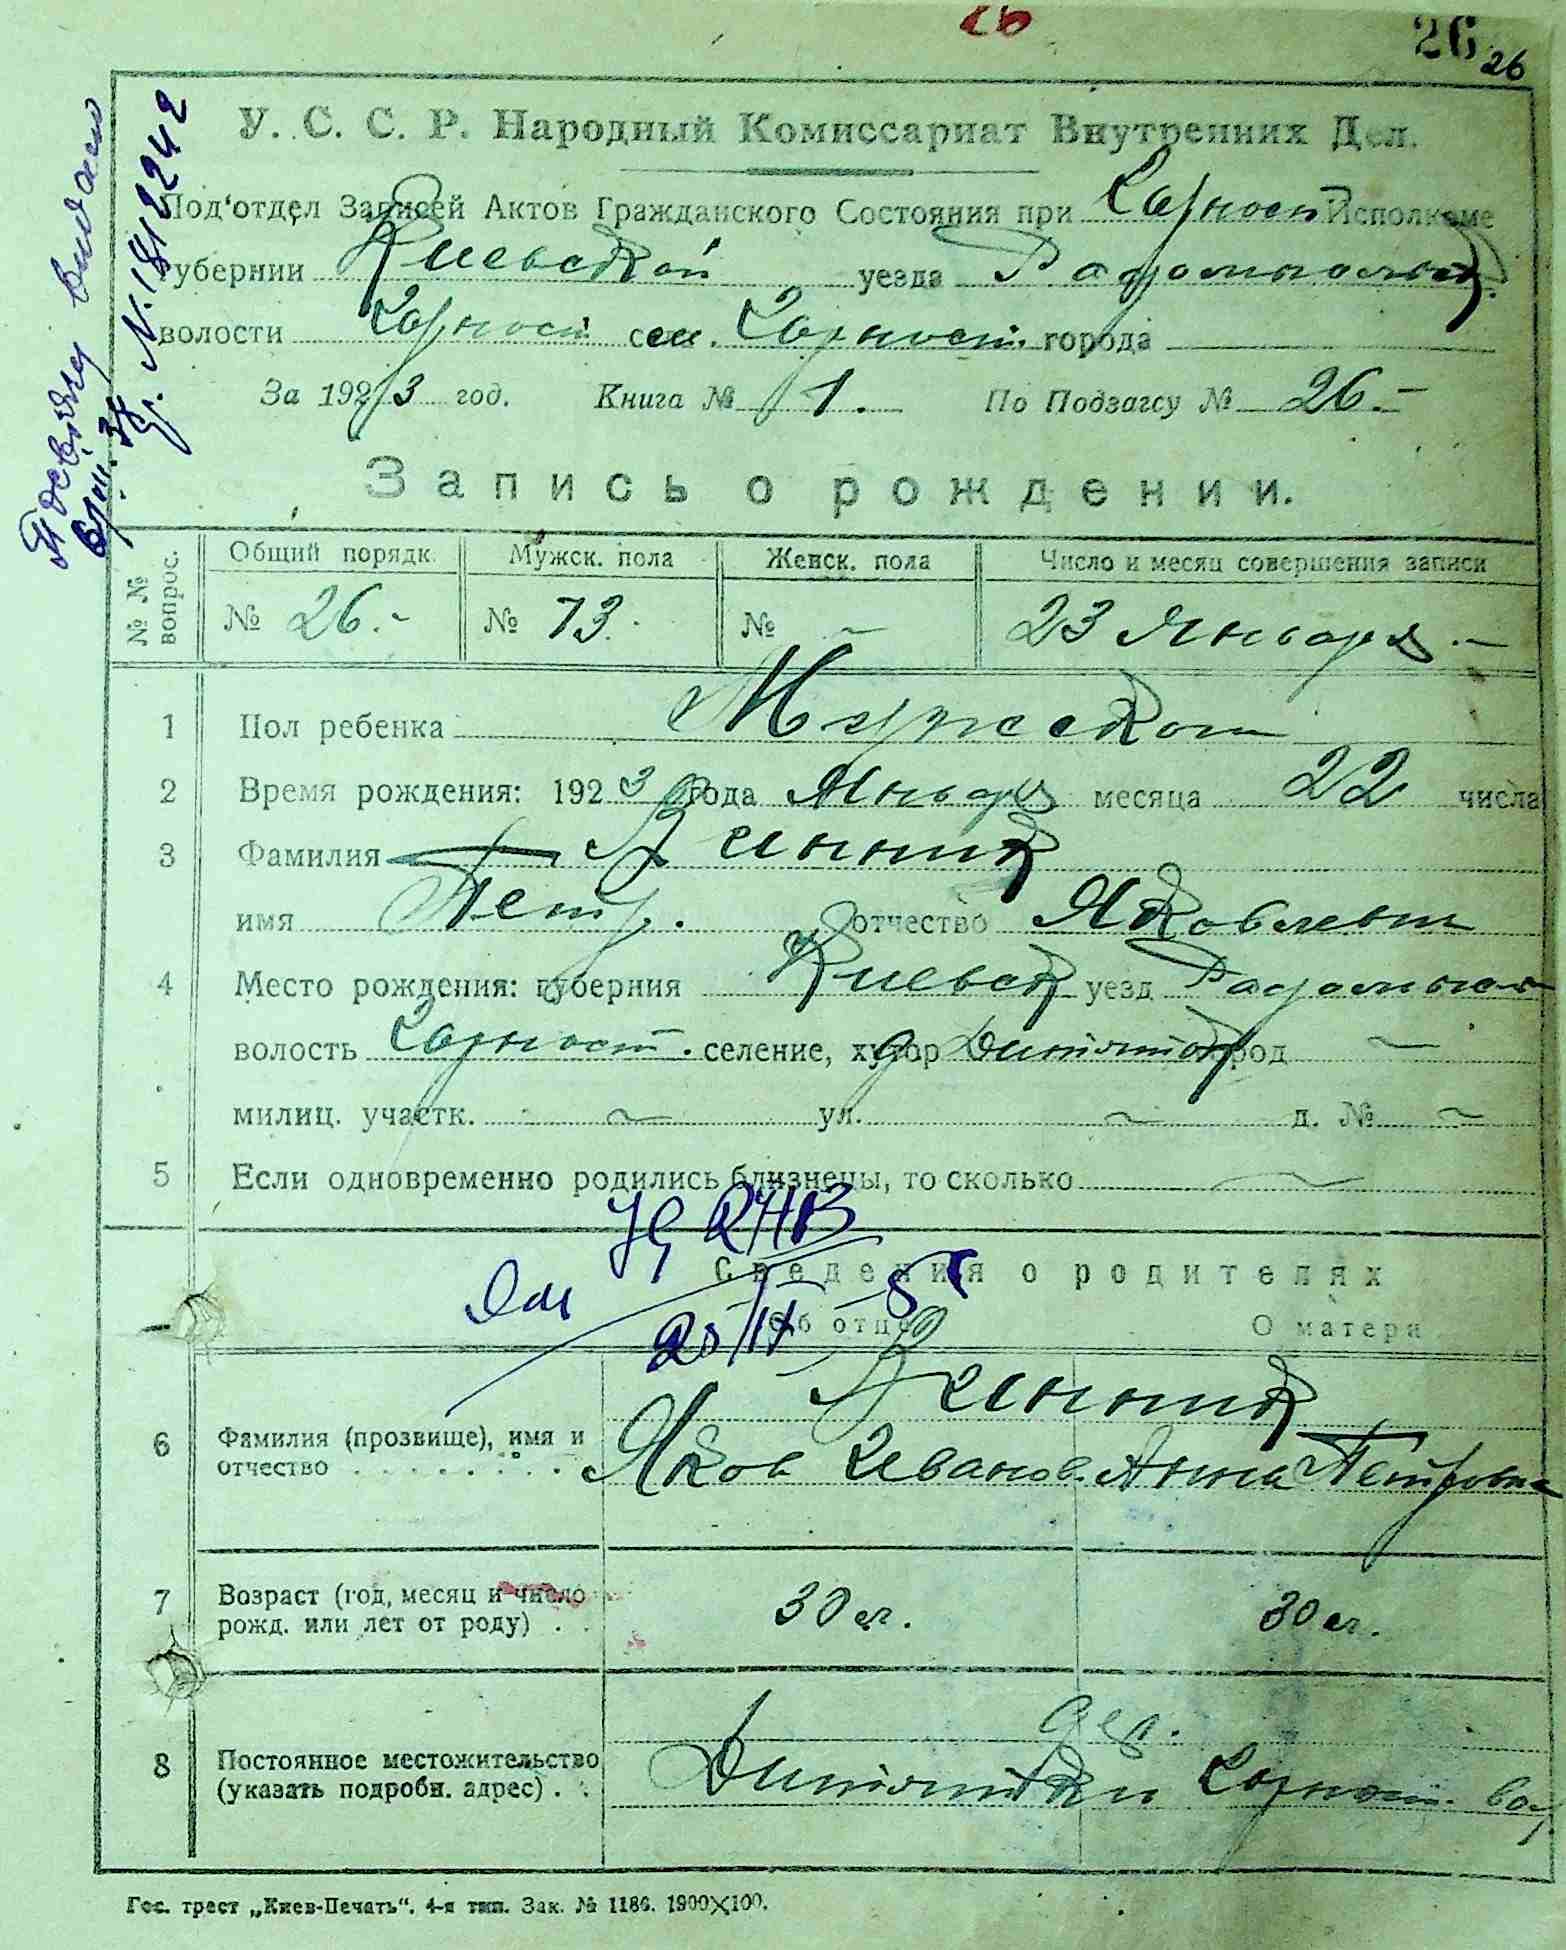 26
26
26
У. С. С. Р. Народный Комиссариат Внутренних Дел.
Под'отдел Записей Актов Гражданского Состояния при Горност Исполкоме
Губернии Киевской уезда Радомысльск.
волости Горност сел. Горност. города
За 1923 год. Книга № 1. По Подзагсу № 26.-
Запись о рождении.
№ № вопрос.
Общий порядк. Мужск. пола Женск. пола Число и месяц совершения записи
№ 26.- № 13. № 23 Января.-
1 Пол ребенка Мужской
2 Время рождения: 1923 года Января месяца 22 числа
3 Фамилия Винник
имя Петр. отчество Яковлевич
4 Место рождения: губерния Киевск уезд Радомысл
волость Горност. селение, хутор д Дитятк город
милиц. участк. ул. д. №
5 Если одновременно родились близнецы, то сколько
Сведения о родителях
Об отце О матери
Винник
6 Фамилия (прозвище), имя и
отчество Яков Иванов. Анна Петровна
7 Возраст (год, месяц и число
рожд. или лет от роду) 30 л. 30 л.
дер.
8 Постоянное местожительство
(указать подробн. адрес) Дитятки Горност. вол.
Гос. трест „Киев-Печать“. 4-я тип. Зак. № 1186. 1900X100.